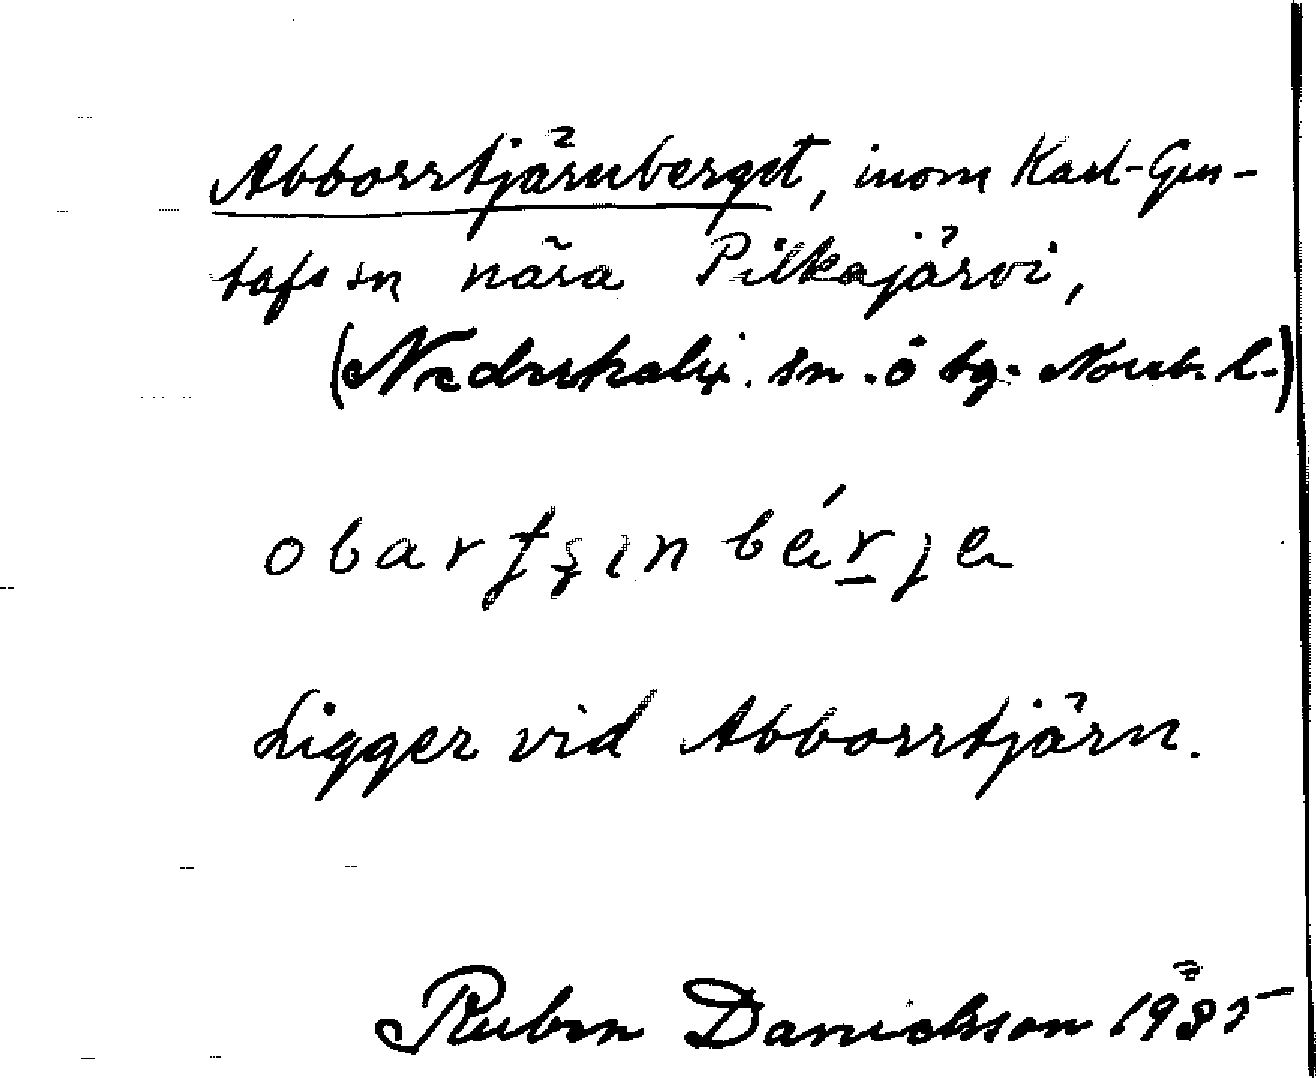 Abborrtjärnberget, inom Karl-Gus-
tafs sn nära Pilkajärvi,
(Nederkalix sn. ö bg. Norrb. l.)
obarʈʂɩnbérje
Ligger vid Abborrtjärn.
Ruben Danielsson 1935